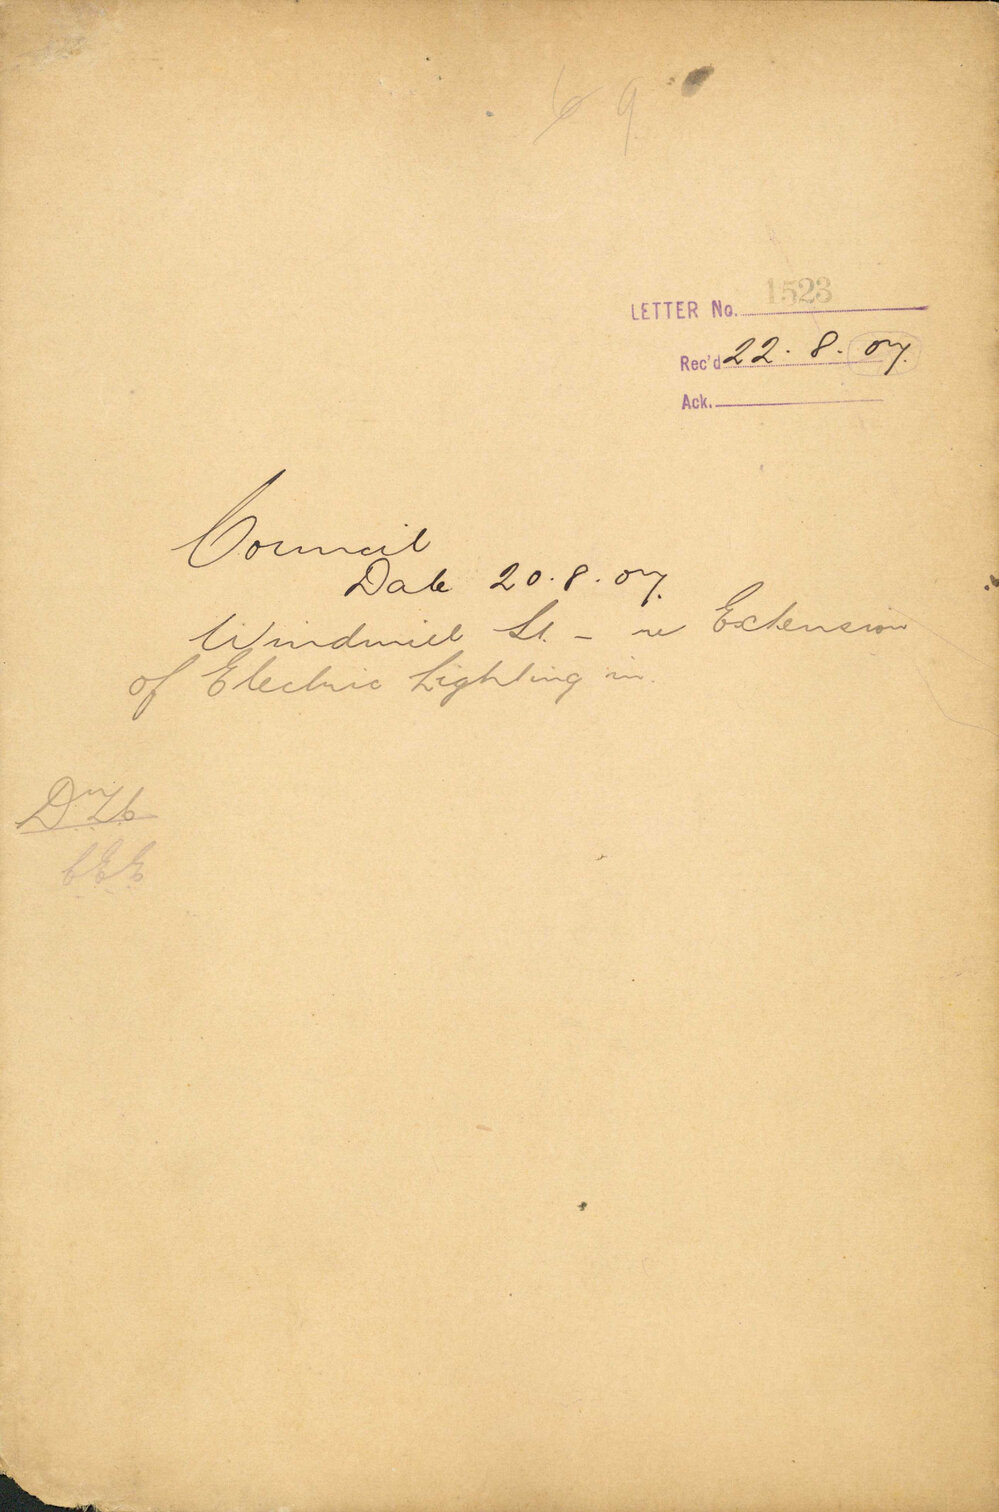 6 9
LETTER No. 1523
Rec'd 22. 8. 07.
Ack.
Council
Date 20.8.07.
Windmill St. – re Extension
of Electric Lighting in.
CEE